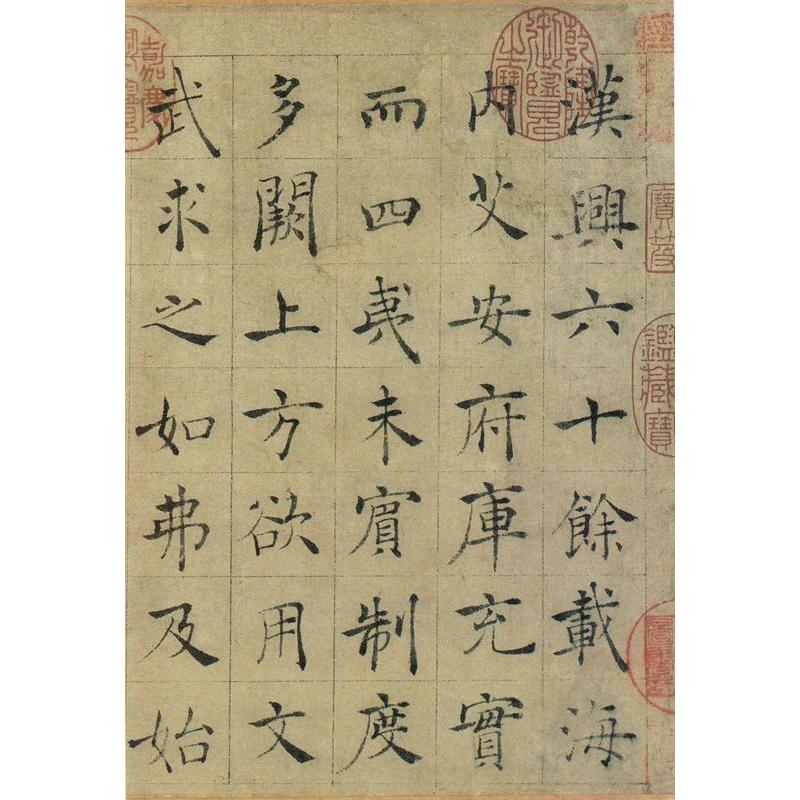 漢興六十餘載海
内艾安府庫充實
而四夷未賓制度
多闕上方欲用文
武求之如弗及始
乾隆御覽之寶
嘉慶
寶笈
鑑藏寶